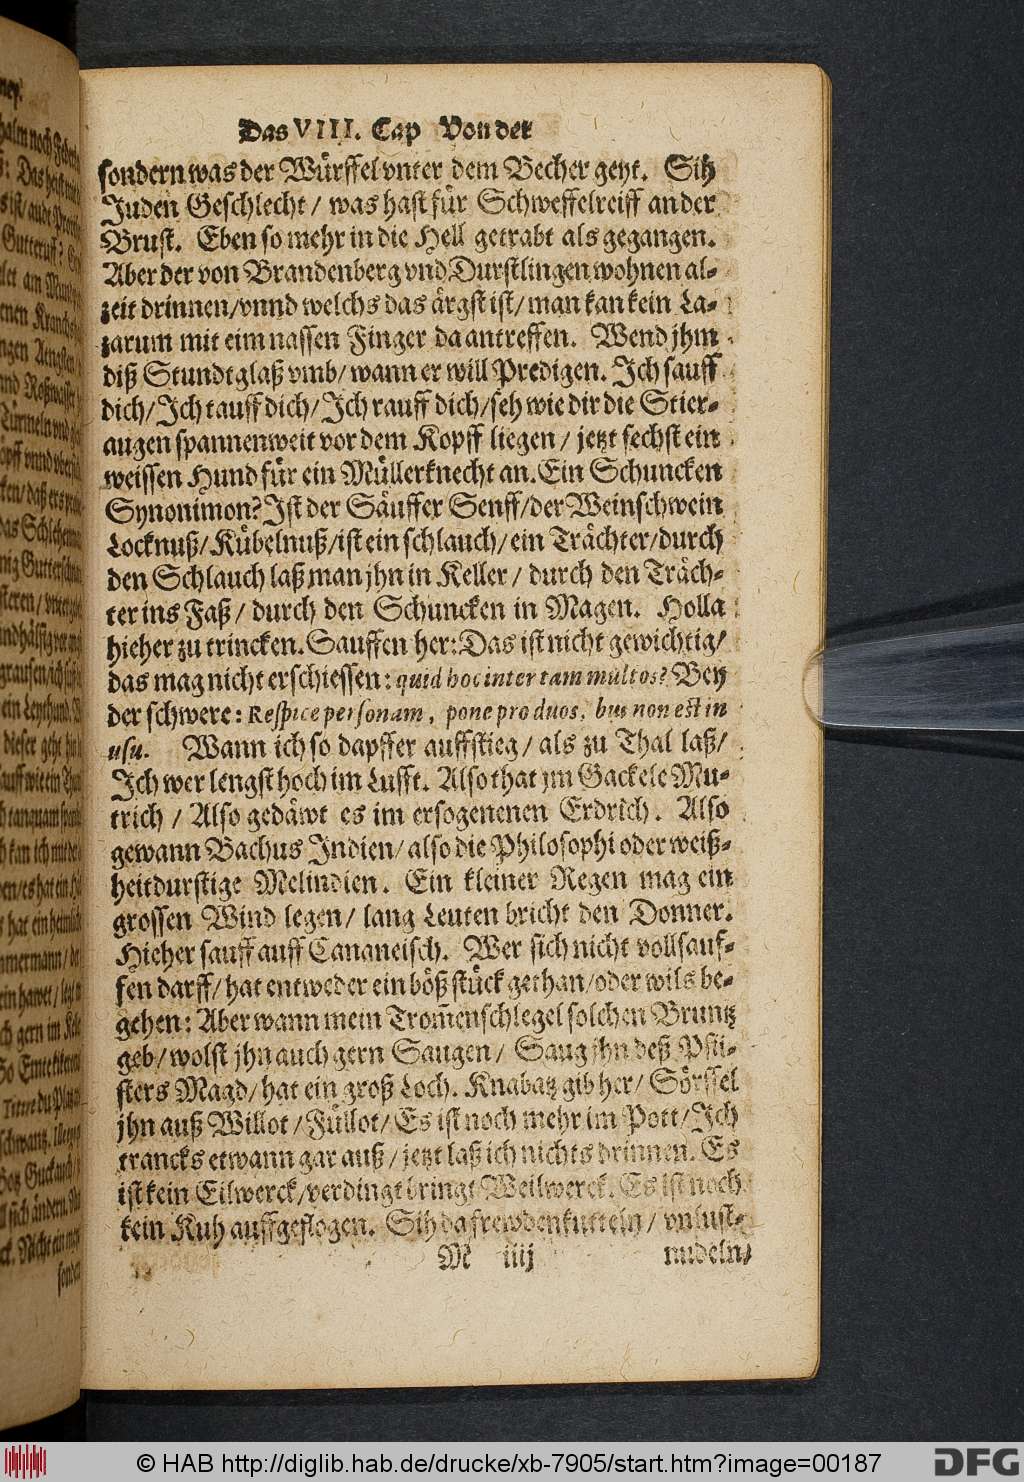 Das VIII. Cap Von der
sondern was der Würffel vnter dem Becher geyt. Sih
Juden Geschlecht / was hast für Schweffelreiff an der
Brust. Eben so mehr in die Hell getrabt als gegangen.
Aber der von Brandenberg vnd Durstlingen wohnen al-
zeit drinnen/vnnd welchs das ärgst ist/man kan kein La-
zarum mit eim nassen Finger da antreffen. Wend jhm
diß Stundtglaß vmb/wann er will Predigen. Ich sauff
dich/Ich tauff dich/Ich rauff dich/seh wie dir die Stier-
augen spannenweit vor dem Kopff liegen / jetzt sechst ein
weissen Hund für ein Müllerknecht an. Ein Schuncken
Synonimon? Ist der Säuffer Senff/der Weinschwein
Locknuß/Kübelnuß/ist ein schlauch/ein Trächter/durch
den Schlauch laß man jhn in Keller / durch den Träch-
ter ins Faß / durch den Schuncken in Magen. Holla
hieher zu trincken. Sauffen her: Das ist nicht gewichtig/
das mag nicht erschiessen: quid hoc inter tam multos? Bey
der schwere: Respice personam, pone pro duos, bus non est in
usu. Wann ich so dapffer auffstieg / als zu Thal laß/
Ich wer lengst hoch im Lufft. Also that jm Gackele Mu-
trich / Also gedäwt es im ersogenenen Erdrich. Also
gewann Bachus Indien/also die Philosophi oder weiß-
heitdurstige Melindien. Ein kleiner Regen mag ein
grossen Wind legen / lang Leuten bricht den Donner.
Hieher sauff auff Cananeisch. Wer sich nicht vollsauf-
fen darff/hat entweder ein böß stück gethan/oder wils be-
gehen: Aber wann mein Trom̃enschlegel solchen Bruntz
geb/wolst jhn auch gern Saugen / Saug jhn deß Pfi-
sters Magd/hat ein groß Loch. Knabatz gib her/Sörffel
jhn auß Willot/Füllot/Es ist noch mehr im Pott/Ich
trancks etwann gar auß/jetzt laß ich nichts drinnen. Es
ist kein Eilwerck/verdingt bringt Weilwerck. Es ist noch
kein Kuh auffgeflogen. Sih da frewdenkutteln/vnlust-
M iiij nudeln/
© HAB http://diglib.hab.de/drucke/xb-7905/start.htm?image=00187
DFG